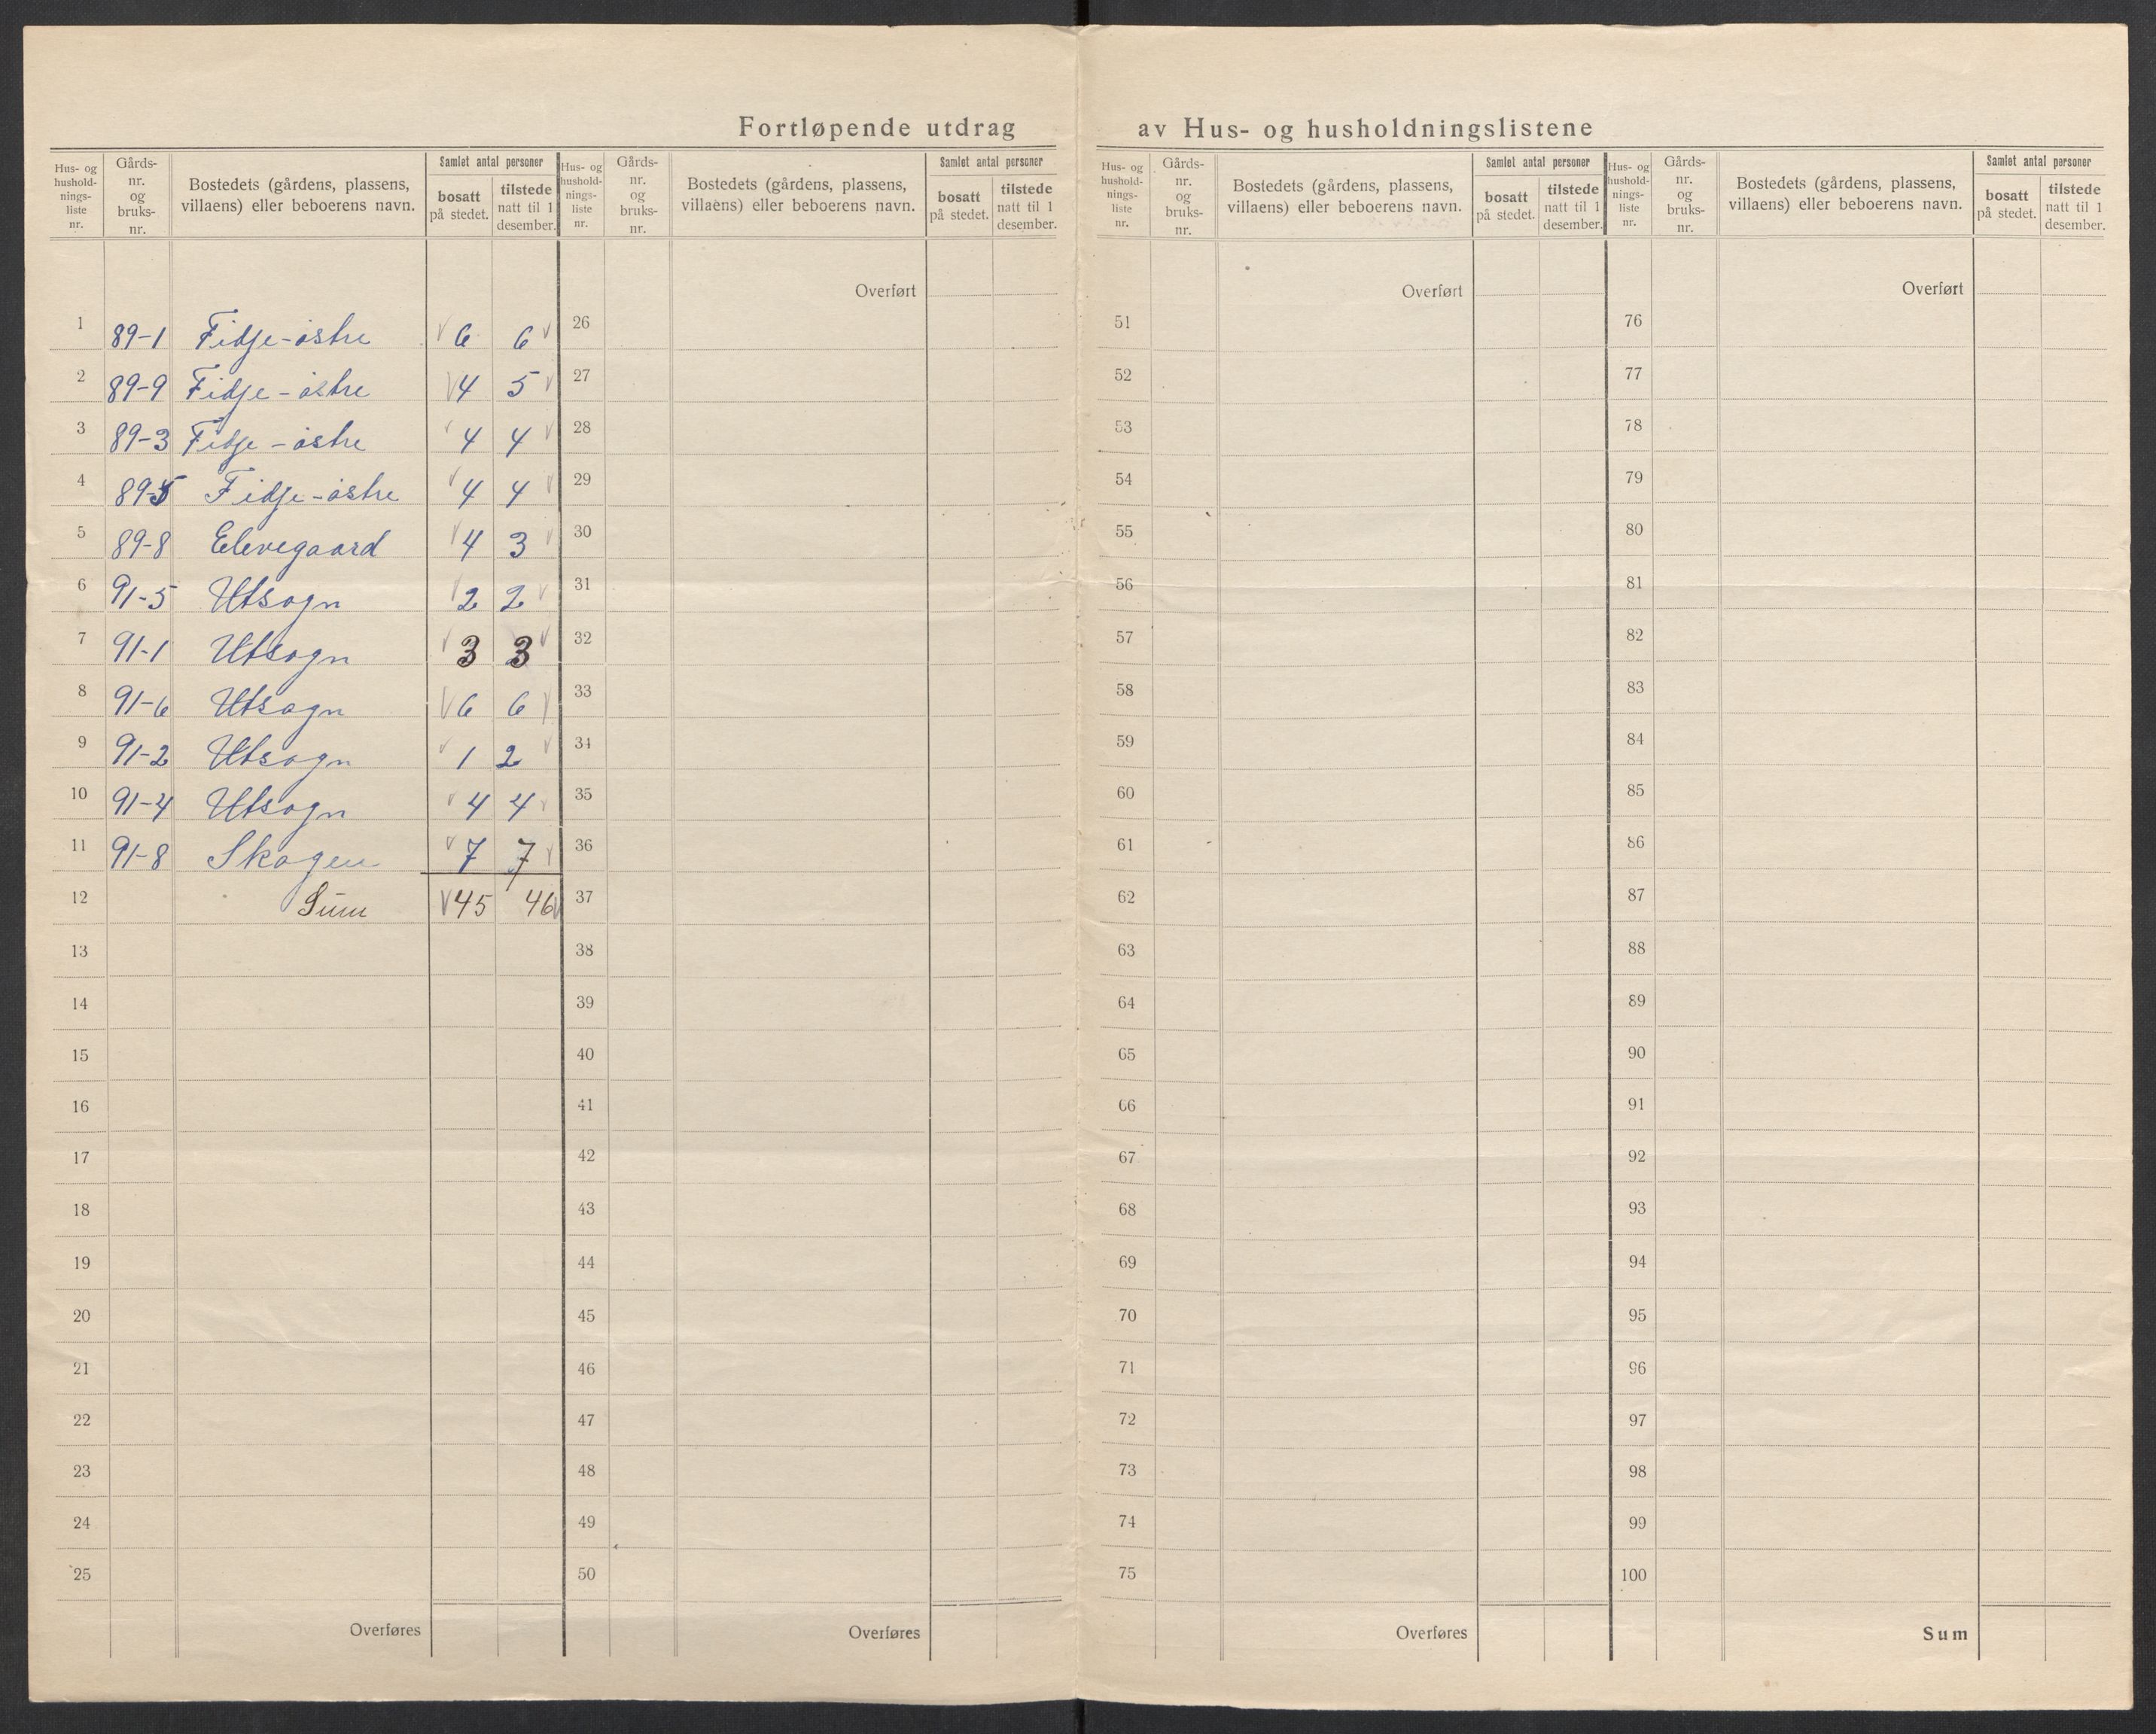 Fortløpende utdrag av Hus- og husholdningslistene
Hus- og husholdnings-liste nr. Gårds-nr. og bruks-nr. Bostedets (gårdens, plassens, villaens) eller beboerens navn. Samlet antal personer bosatt på stedet. tilstede natt til 1 desember.
Hus- og husholdnings-liste nr. Gårds-nr. og bruks-nr. Bostedets (gårdens, plassens, villaens) eller beboerens navn. Samlet antal personer bosatt på stedet. tilstede natt til 1 desember.
Hus- og husholdnings-liste nr. Gårds-nr. og bruks-nr. Bostedets (gårdens, plassens, villaens) eller beboerens navn. Samlet antal personer bosatt på stedet. tilstede natt til 1 desember.
Hus- og husholdnings-liste nr. Gårds-nr. og bruks-nr. Bostedets (gårdens, plassens, villaens) eller beboerens navn. Samlet antal personer bosatt på stedet. tilstede natt til 1 desember.
Overført Overført Overført
1 89-1 Fidje-østre 6 6 26 51 76
2 89-9 Fidje-østre 4 5 27 52 77
3 89-3 Fidje-østre 4 4 28 53 78
4 89-5 Fidje-østre 4 4 29 54 79
5 89-8 Elevegaard 4 3 30 55 80
6 91-5 Utsogn 2 2 31 56 81
7 91-1 Utsogn 3 3 32 57 82
8 91-6 Utsogn 6 6 33 58 83
9 91-2 Utsogn 1 2 34 59 84
10 91-4 Utsogn 4 4 35 60 85
11 91-8 Skogen 7 7 36 61 86
12 Sum 45 46 37 62 87
13 38 63 88
14 39 64 89
15 40 65 90
16 41 66 91
17 42 67 92
18 43 68 93
19 44 69 94
20 45 70 95
21 46 71 96
22 47 72 97
23 48 73 98
24 49 74 99
25 50 75 100
Overføres Overføres Overføres Sum